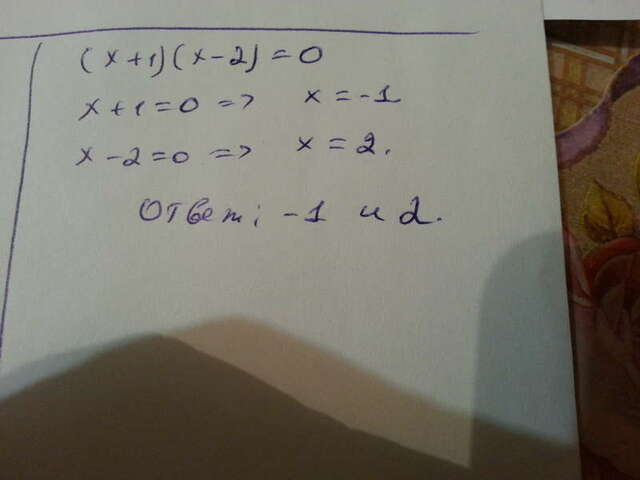 (x+1)(x-2)=0
x+1=0 => x=-1
x-2=0 => x=2.
Ответ: -1 и 2.